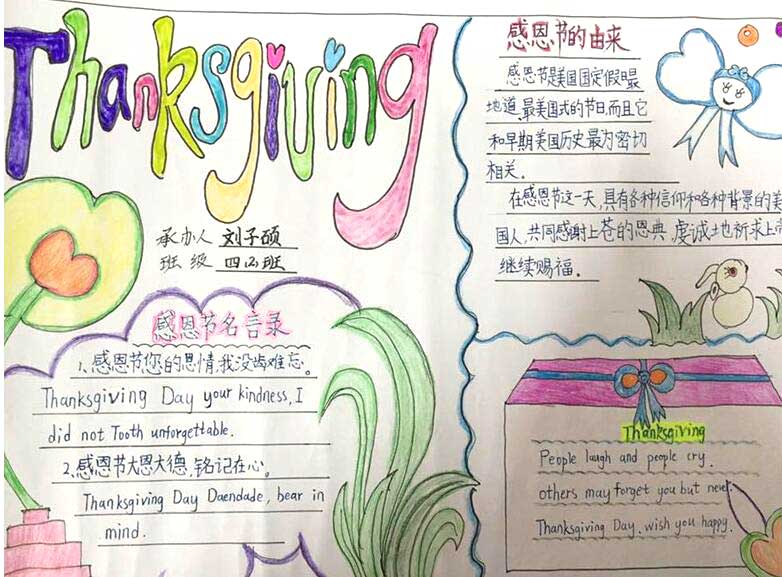 Thanksgiving
承办人 刘子硕
班级 四(2)班
感恩节名言录
1、感恩节您的恩情,我没齿难忘。
Thanksgiving Day your kindness, I
did not Tooth unforgettable.
2、感恩节大恩大德,铭记在心。
Thanksgiving Day Daendade, bear in
mind.
感恩节的由来
感恩节是美国国定假日最
地道、最美国式的节日,而且它
和早期美国历史最为密切
相关。
在感恩节这一天,具有各种信仰和各种背景的美
国人,共同感谢上苍的恩典,虔诚地祈求上帝
继续赐福。
Thanksgiving
People laugh and people cry.
others may forget you but never.
Thanksgiving Day. wish you happy.